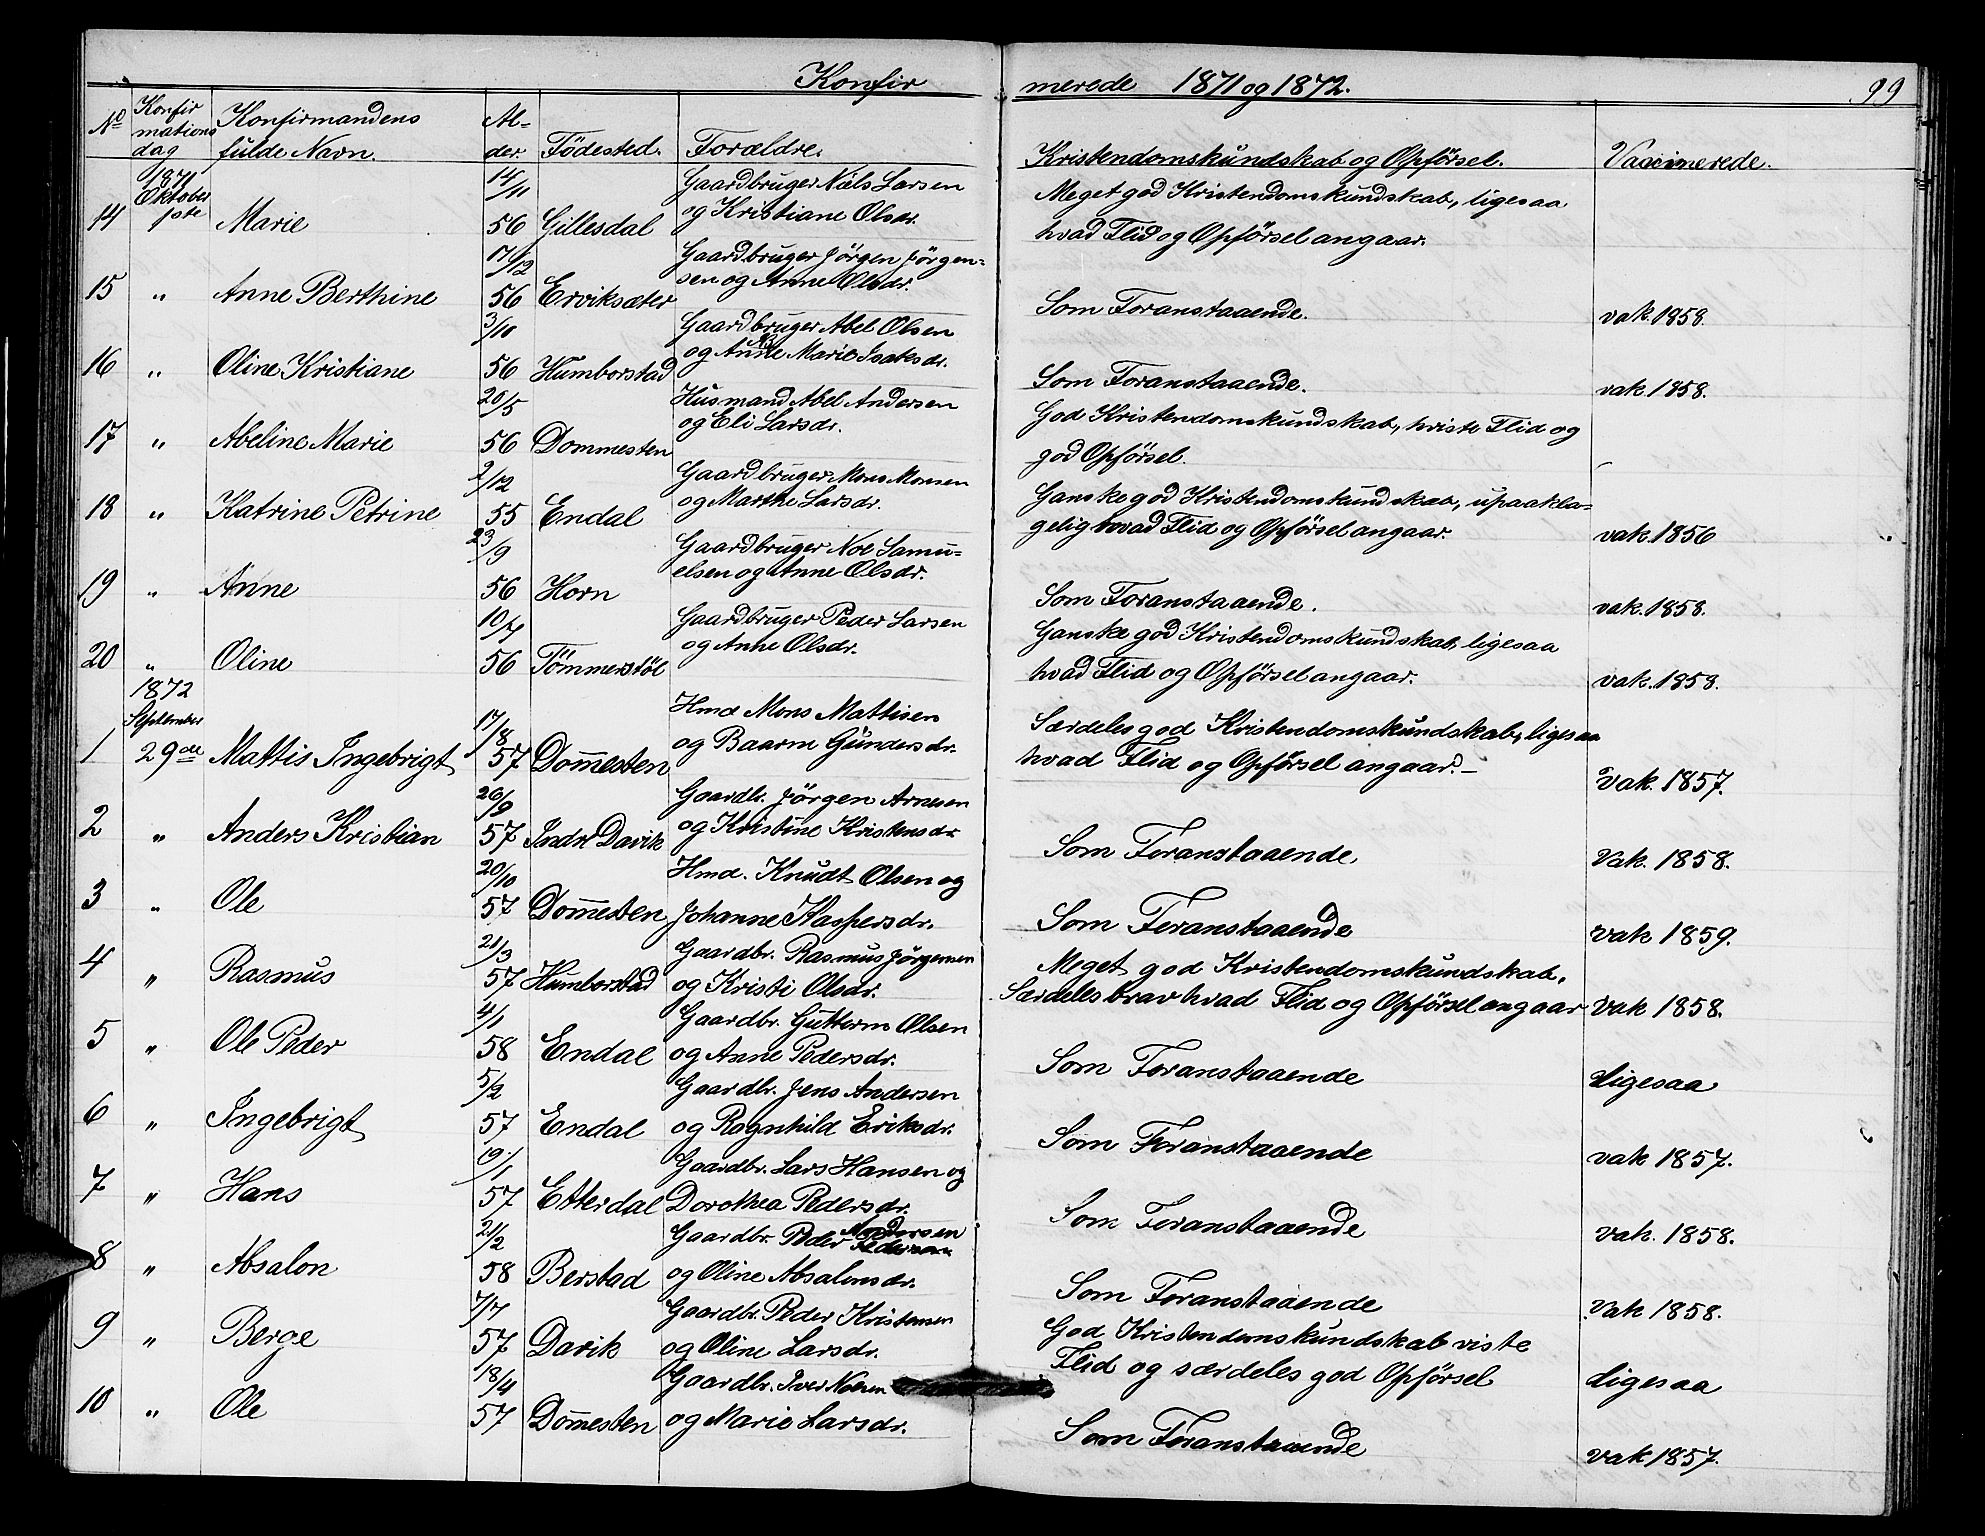 Konfir merede 1871 og 1872. 99
No Konfir mations dag Konfirmandens fulde Navn. Al- der. Födested. Forældre. Kristendomskundskab og Opförsel. Vaccinerede.
1871 Oktober 1ste
14 Marie 14/11 56 Gillesdal Gaardbruger Niels Larsen
og Kristiane Olsdr.
Meget god Kristendomskundskab, ligesaa
hvad Flid og Opförsel angaar.
15 " Anne Berthine 17/12 56 Erviksæter Gaardbruger Jörgen Jörgen-
sen og Anne Olsdr.
Som Foranstaaende. vak. 1858.
16 " Oline Kristiane 3/10 56 Humborstad Gaardbruger Abel Olsen
og Anne Marie Isaksdr.
Som Foranstaaende. vak. 1858.
17 " Abeline Marie 20/5 56 Dommesten Husmand Abel Andersen
og Eli Larsdr.
God Kristendomskundskab, hviste Flid og
god Opförsel.
18 " Katrine Petrine 2/12 55 Endal Gaardbruger Mons Monsen
og Marthe Larsdr.
Ganske god Kristendomskundskab, upaakla-
gelig hvad Flid og Opförsel angaar. vak. 1856
19 " Anne 23/9 56 Horn Gaardbruger Noe Samu-
elsen og Anne Olsdr.
Som Foranstaaende. vak. 1858.
20 " Oline 10/7 56 Tömmerstöl Gaardbruger Peder Larsen
og Anne Olsdr.
Ganske god Kristendomskundskab, ligesaa
hvad Flid og Opförsel angaar. vak. 1858.
1872 September
1 29de Mattis Ingebrigt 17/8 57 Dom̄esten Hmd Mons Mattisen
og Baarm Gundersdr.
Særdeles god Kristendomskundskab, ligesaa
hvad Flid og Opförsel angaar.- Vak. 1857.
2 " Anders Kristian 26/9 57 Indre Davik Gaardbr. Jörgen Arnesen
og Kristine Kristensdr.
Som Foranstaaende Vak. 1858.
3 " Ole 20/10 57 Dom̄esten Hmd. Knudt Olsen og
Johanne Kaspersdr.
Som Foranstaaende vak 1859.
4 " Rasmus 21/3 57 Humborstad Gaardbr. Rasmus Jörgensen
og Kristi Olsdr.
Meget god Kristendomskundskab,
Særdeles brav hvad Flid og Opförsel angaar vak 1858.
5 " Ole Peder 4/1 58 Endal Gaardbr. Gutterm Olsen
og Anne Pedersdr.
Som Foranstaaende Ligesaa
6 " Ingebrigt 5/2 57 Endal Gaardbr. Jens Andersen
og Ragnhild Eriksdr.
Som Foranstaaende vak 1857.
7 " Hans 19/1 57 Etterdal Gaardbr. Lars Hansen og
Dorothea Pedersdr.
Som Foranstaaende vak. 1858.
8 " Absalon 21/2 58 Berstad Gaardbr. Peder Andersen
og Oline Absalonsdr.
Som Foranstaaende vak 1858.
9 " Berge 7/7 57 Davik Gaardbr. Peder Kristensen
og Oline Larsdr.
God Kristendomskundskab viste
Flid og særdeles god Opförsel Ligesaa
10 " Ole 18/4 57 Dom̄esten Gaardbr. Iver Noesen
og Marie Larsdr.
Som Foranstaaende vak 1857.